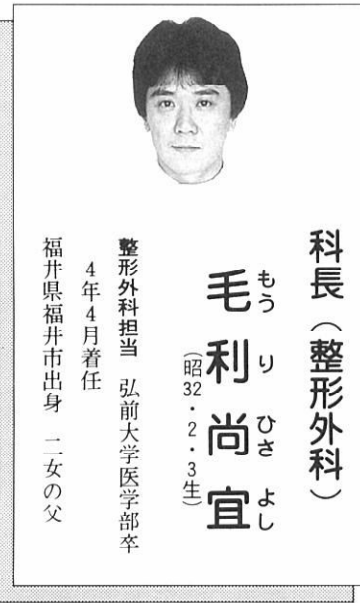 科長（整形外科）
もうりひさよし
毛利尚宜
（昭32・2・3生）
整形外科担当　弘前大学医学部卒
4年4月着任
福井県福井市出身　二女の父